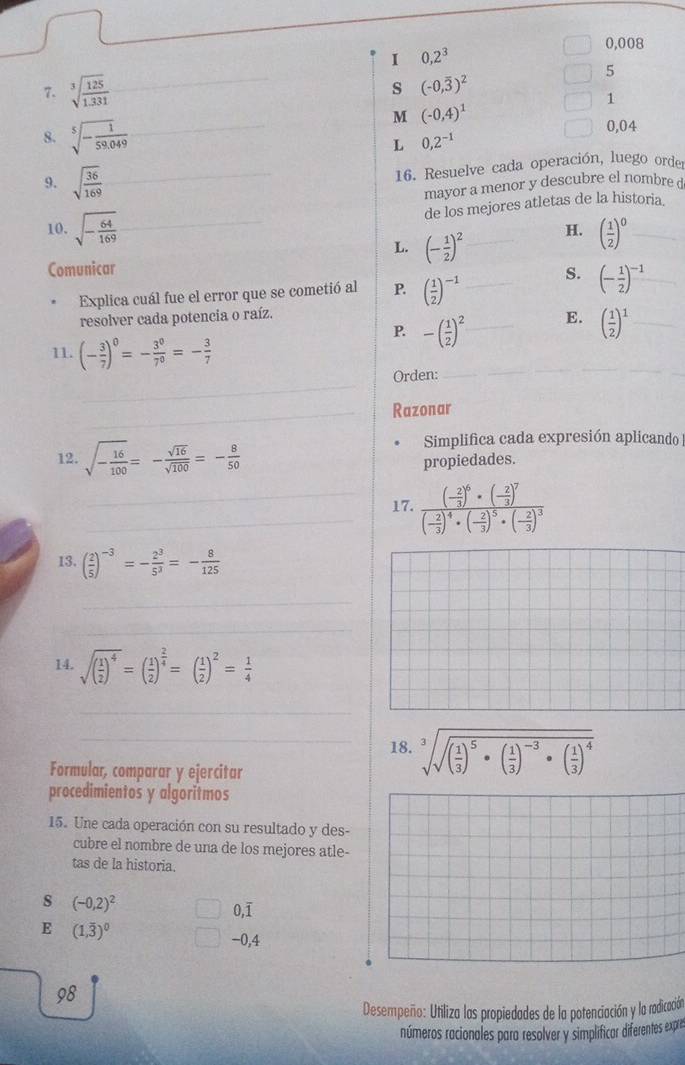 7. ∛(125/1.331)
8. ⁵√(-1/59.049)
9. √(36/169)
10. √(-64/169)
Comunicar
• Explica cuál fue el error que se cometió al
resolver cada potencia o raíz.
11. (-3/7)⁰ = -3⁰/7⁰ = -3/7
12. √(-16/100) = -√16/√100 = -8/50
13. (2/5)⁻³ = -2³/5³ = -8/125
14. √((1/2)⁴) = (1/2)^(2/4) = (1/2)² = 1/4
Formular, comparar y ejercitar
procedimientos y algoritmos
15. Une cada operación con su resultado y des-
cubre el nombre de una de los mejores atle-
tas de la historia.
S (-0,2)² 0,1̅
E (1,3̅)⁰ -0,4
I 0,2³ 0,008
S (-0,3̅)² 5
M (-0,4)¹ 1
L 0,2⁻¹ 0,04
16. Resuelve cada operación, luego
mayor a menor y descubre el nombre
de los mejores atletas de la historia.
L. (-1/2)² H. (1/2)⁰
P. (1/2)⁻¹ S. (-1/2)⁻¹
P. -(1/2)² E. (1/2)¹
Orden:
Razonar
• Simplifica cada expresión aplicando
propiedades.
17. ((-2/3)⁶ · (-2/3)⁷) / ((-2/3)⁴ · (-2/3)⁵ · (-2/3)³)
18. ∛√((1/3)⁵ · (1/3)⁻³ · (1/3)⁴)
98
Desempeño: Utiliza las propiedades de la potenciación y la radicación
números racionales para resolver y simplificar diferentes